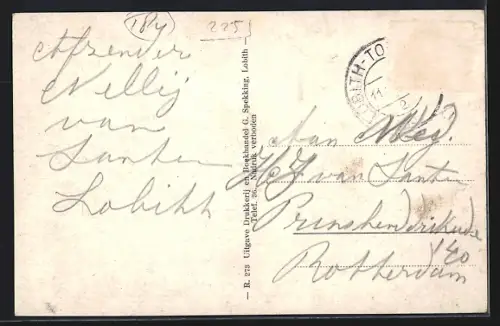 184
225
Afzender
Nellij
van
Santen
Lobith
— R. 273 Uitgave Drukkerij en Boekhandel G. Spekking, Lobith —
Telef. 26. Nadruk verboden
LOBITH-TO
11
2
Aan Mej.
H J van Santen
Prins Hendrikade
140
Rotterdam